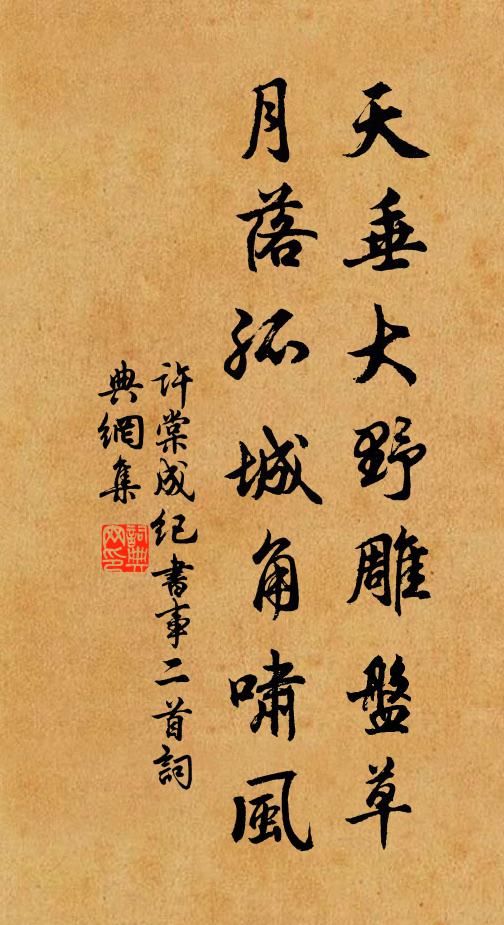 天垂大野雕盤草
月落孤城角嘯風
許棠成紀書事二首詞
典網集
詞典
网印